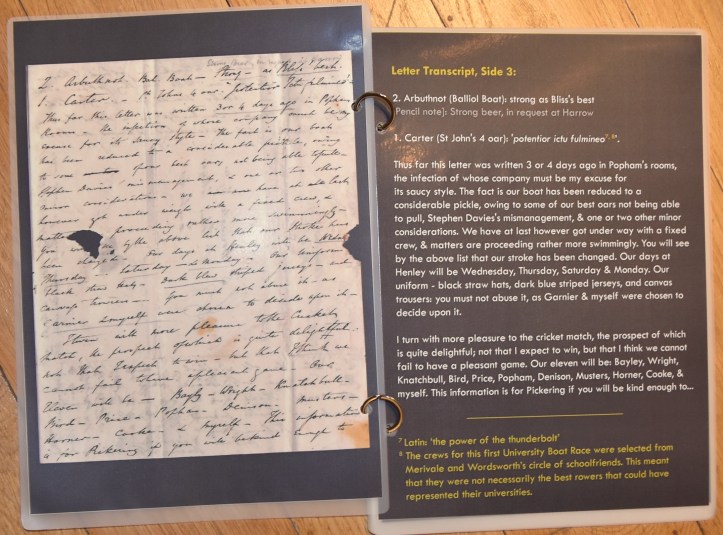 2. Arbuthnot. Bal: Boat – strong – as Bliss's best.
1. Carter. – St Johns 4 oar: "potentior Ictu fulmineo"
Thus far this letter was written 3 or 4 days ago in Popham's
Rooms – the infection of whose company must be my
excuse for its saucy style – The fact is our boat
has been reduced to a considerable pickle, owing
to some of our best oars not being able to pull –
Stephen Davies' mismanagement, & one or two other
minor considerations – We have at last
however got under weigh with a fixed crew, &
matters proceeding rather more swimmingly –
You will see by the above list that our Stroke has
been changed. Our days at Henley will be
Thursday Saturday & Monday – Our uniform
Black straw hats, Dark blue striped jerseys – and
canvass trowsers: – you must not abuse it – as
Garnier & myself were chosen to decide upon it –
I turn with more pleasure to the Cricket
Match, the prospect of which is quite delightful:
not that I expect to win – but that I think we
cannot fail to have a pleasant game. Our
Eleven will be – Bayly – Wright – Knatchbull –
Bird – Price – Popham – Denison – Musters –
Horner – Cooke – & myself – This information
is for Pickering if you will be kind enough to
Letter Transcript, Side 3:
2. Arbuthnot (Balliol Boat): strong as Bliss's best
Pencil note): Strong beer, in request at Harrow
1. Carter (St John's 4 oar): 'potentior ictu fulmineo'.
Thus far this letter was written 3 or 4 days ago in Popham's rooms,
the infection of whose company must be my excuse for
its saucy style. The fact is our boat has been reduced to a
considerable pickle, owing to some of our best oars not being able
to pull, Stephen Davies's mismanagement, & one or two other minor
considerations. We have at last however got under way with a fixed
crew, & matters are proceeding rather more swimmingly. You will see
by the above list that our stroke has been changed. Our days at
Henley will be Wednesday, Thursday, Saturday & Monday. Our
uniform - black straw hats, dark blue striped jerseys, and canvas
trousers: you must not abuse it, as Garnier & myself were chosen to
decide upon it.
I turn with more pleasure to the cricket match, the prospect of which
is quite delightful; not that I expect to win, but that I think we cannot
fail to have a pleasant game. Our eleven will be: Bayley, Wright,
Knatchbull, Bird, Price, Popham, Denison, Musters, Horner, Cooke, &
myself. This information is for Pickering if you will be kind enough to...
7 Latin: 'the power of the thunderbolt'
8 The crews for this first University Boat Race were selected from
Merivale and Wordsworth's circle of schoolfriends. This meant
that they were not necessarily the best rowers that could have
represented their universities.